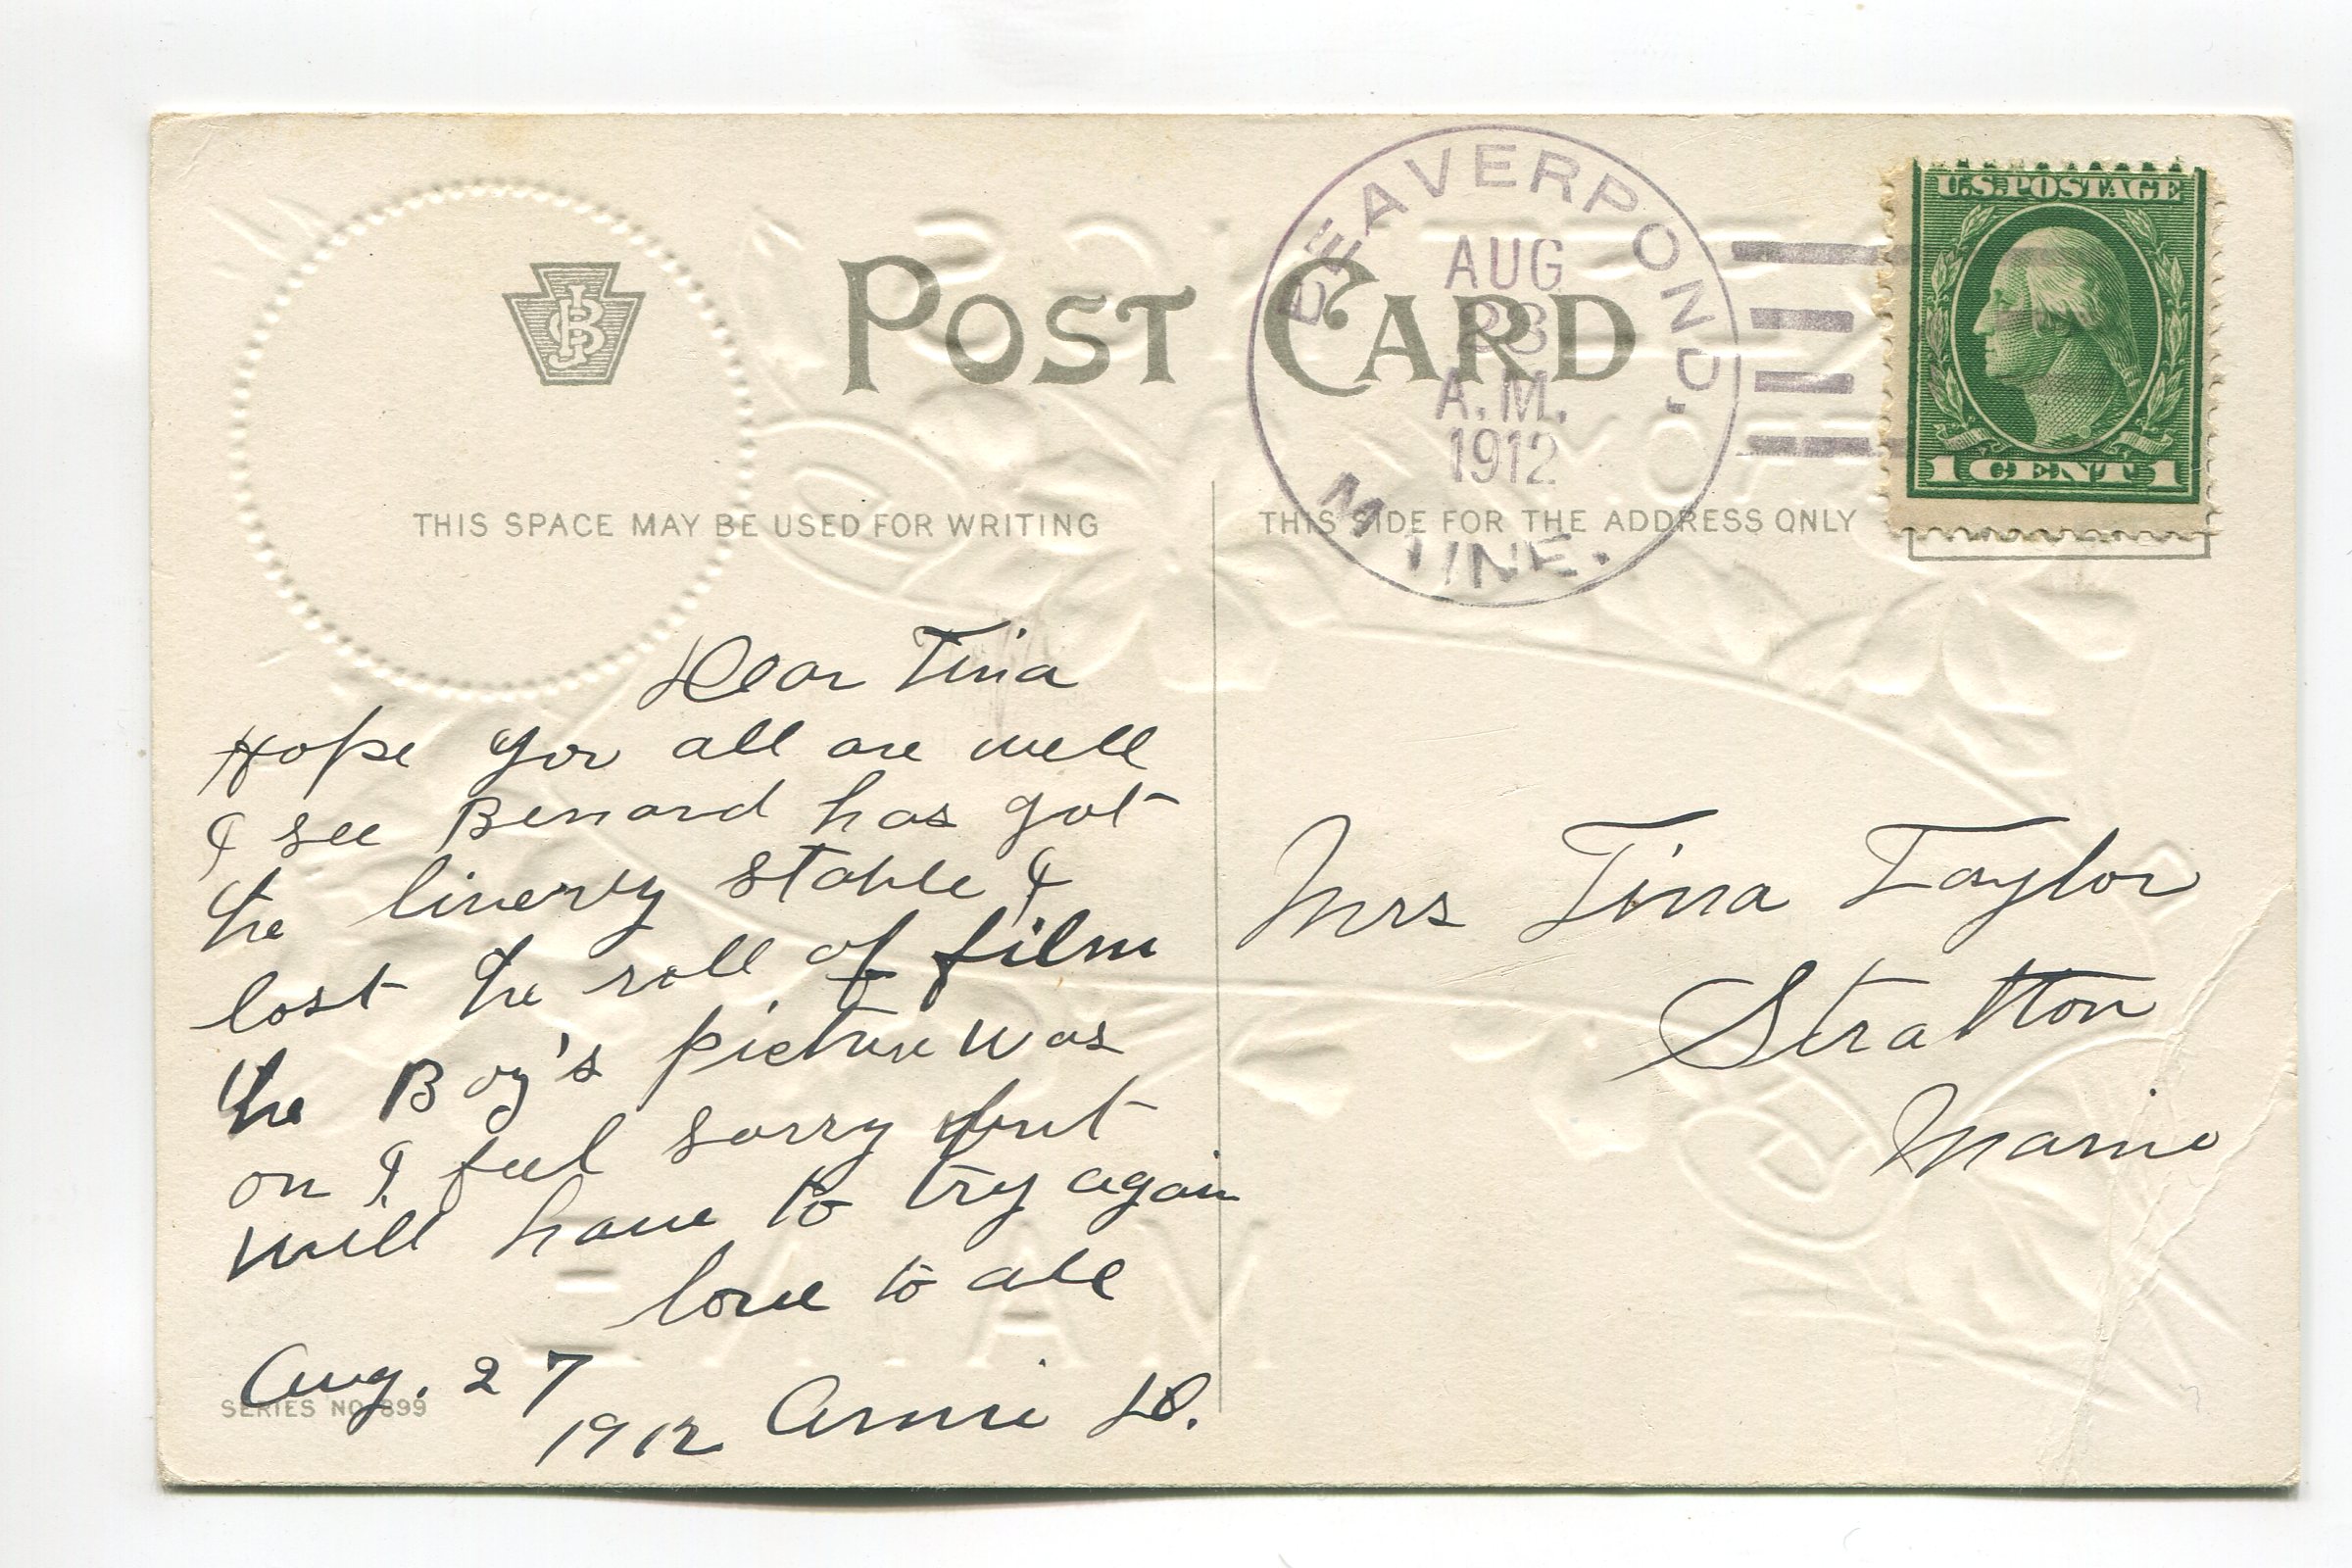 POST CARD
BEAVERPOND,
AUG
A.M.
1912
MAINE.
U.S. POSTAGE
1 CENT 1
THIS SPACE MAY BE USED FOR WRITING
THIS SIDE FOR THE ADDRESS ONLY
Dear Tina
Hope you all are well
I see Benard has got
the linervy stable I
lost the roll of film
the Boy's picture was
on I feel sorry but
will have to try again
love to all
Aug. 27
1912 Annie D.
SERIES NO. 899
Mrs Tina Taylor
Stratton
Maine